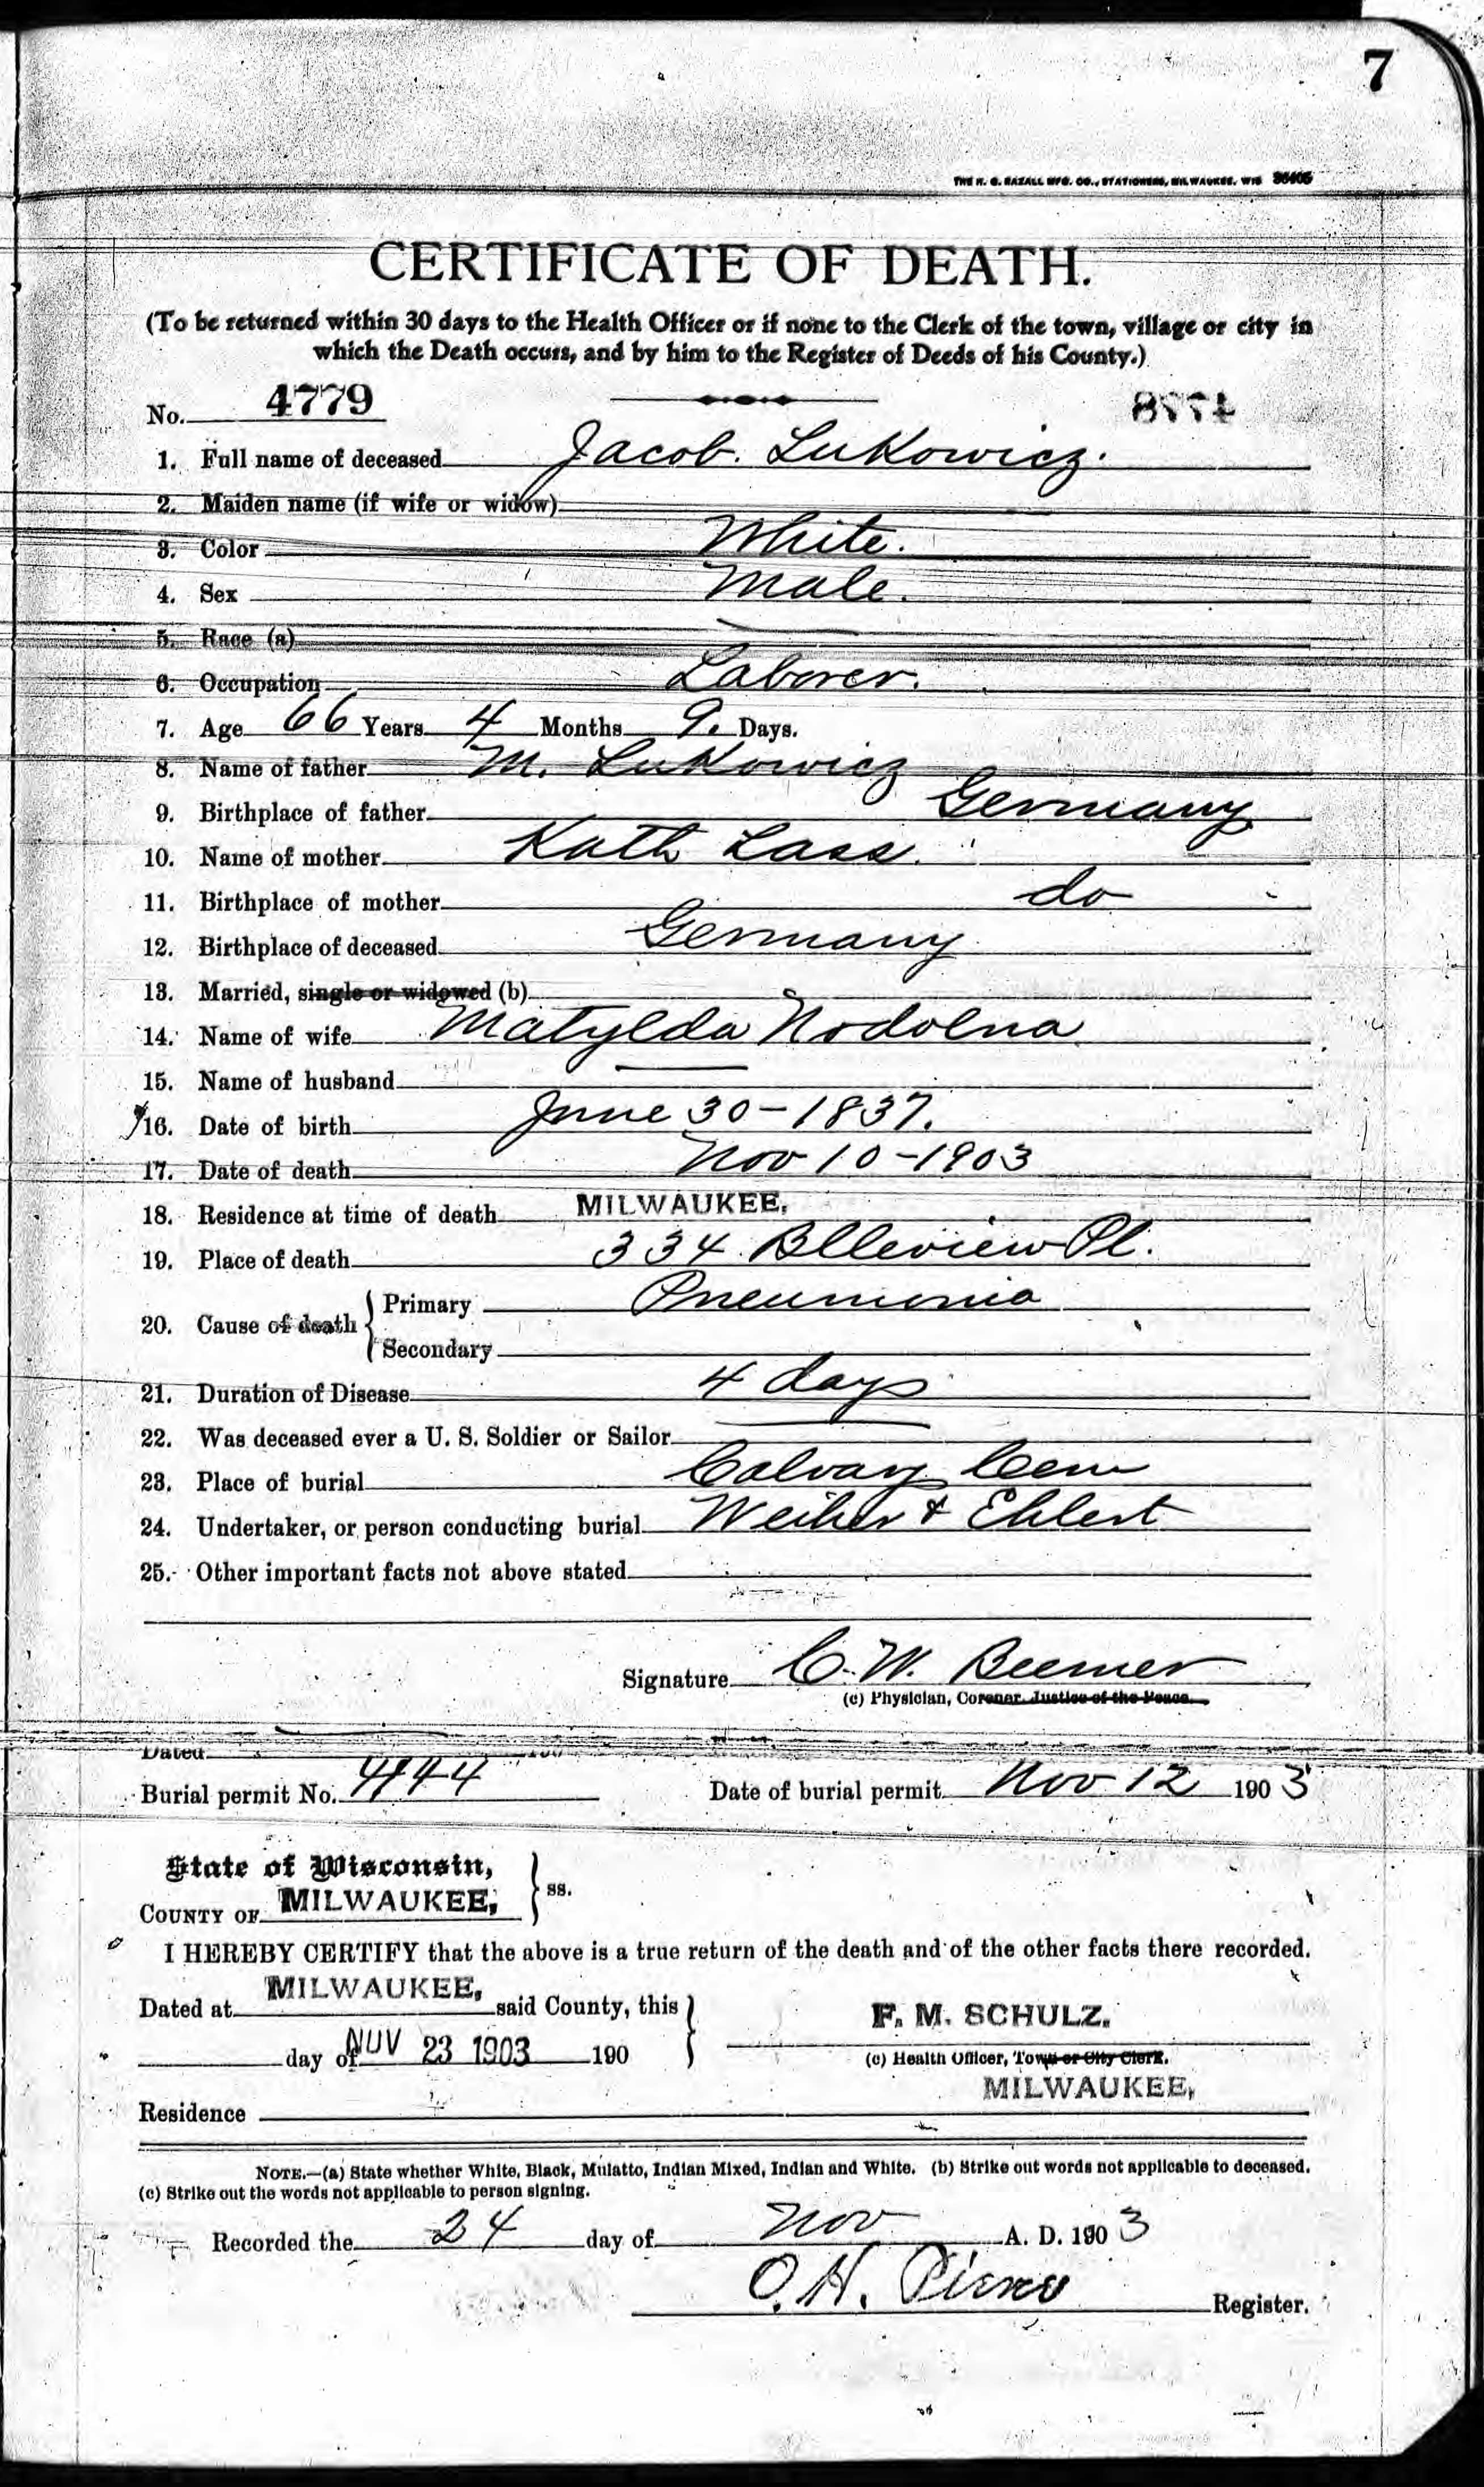 7
THE H. G. RAZALL MFG. CO., STATIONERS, MILWAUKEE, WIS
CERTIFICATE OF DEATH.
(To be returned within 30 days to the Health Officer or if none to the Clerk of the town, village or city in
which the Death occurs, and by him to the Register of Deeds of his County.)
No. 4779
1. Full name of deceased Jacob. Lukowicz.
2. Maiden name (if wife or widow)
3. Color White.
4. Sex Male.
5. Race (a)
6. Occupation Laborer.
7. Age 66 Years 4 Months 9. Days.
8. Name of father M. Lukowicz
9. Birthplace of father Germany
10. Name of mother Kath Lass.
11. Birthplace of mother do
12. Birthplace of deceased Germany
13. Married, single or widowed (b)
14. Name of wife Matylda Nodolna
15. Name of husband
16. Date of birth June 30-1837.
17. Date of death Nov 10-1903
18. Residence at time of death MILWAUKEE,
19. Place of death 334 Blleview Pl.
20. Cause of death Primary Pneumonia
Secondary
21. Duration of Disease 4 days
22. Was deceased ever a U. S. Soldier or Sailor
23. Place of burial Calvary Cem
24. Undertaker, or person conducting burial Weiher & Ehlert
25. Other important facts not above stated
Signature C. W. Beemer
(c) Physician, Coroner, Justice of the Peace.
Dated
Burial permit No. Date of burial permit Nov 12 1903
State of Wisconsin,
COUNTY OF MILWAUKEE, ss.
I HEREBY CERTIFY that the above is a true return of the death and of the other facts there recorded.
Dated at MILWAUKEE, said County, this
F. M. SCHULZ.
day of NOV 23 1903 190
(c) Health Officer, Town or City Clerk.
MILWAUKEE,
Residence
NOTE.—(a) State whether White, Black, Mulatto, Indian Mixed, Indian and White. (b) Strike out words not applicable to deceased.
(c) Strike out the words not applicable to person signing.
Recorded the 24 day of Nov A. D. 1903
O. H. Register.